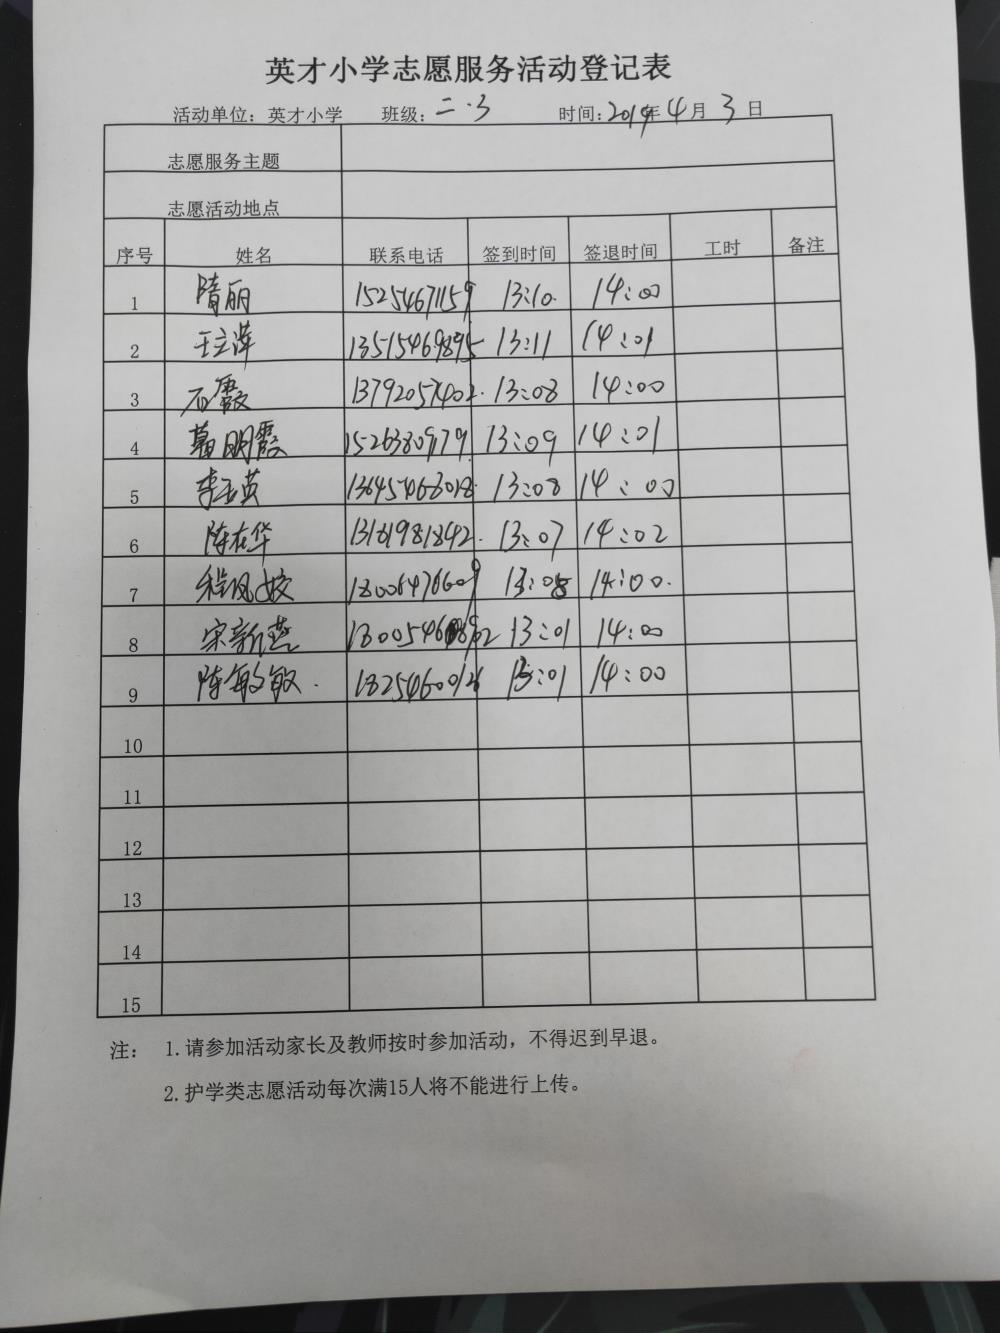 英才小学志愿服务活动登记表
活动单位：英才小学 班级：二.3 时间：2019年4月3日
志愿服务主题
志愿活动地点
序号 姓名 联系电话 签到时间 签退时间 工时 备注
1 隋丽 15254671159 13:10 14:00
2 13515469895 13:11 14:01
3 石霞 13792057402 13:08 14:00
4 明霞 15263809179 13:09 14:01
5 李玉英 13645468018 13:08 14:00
6 陈在华 13181981842 13:07 14:02
7 程凤姣 18006476609 13:08 14:00
8 宋新燕 13:01 14:00
9 陈敏敏 18254600126 13:01 14:00
10
11
12
13
14
15
注： 1.请参加活动家长及教师按时参加活动，不得迟到早退。
2.护学类志愿活动每次满15人将不能进行上传。